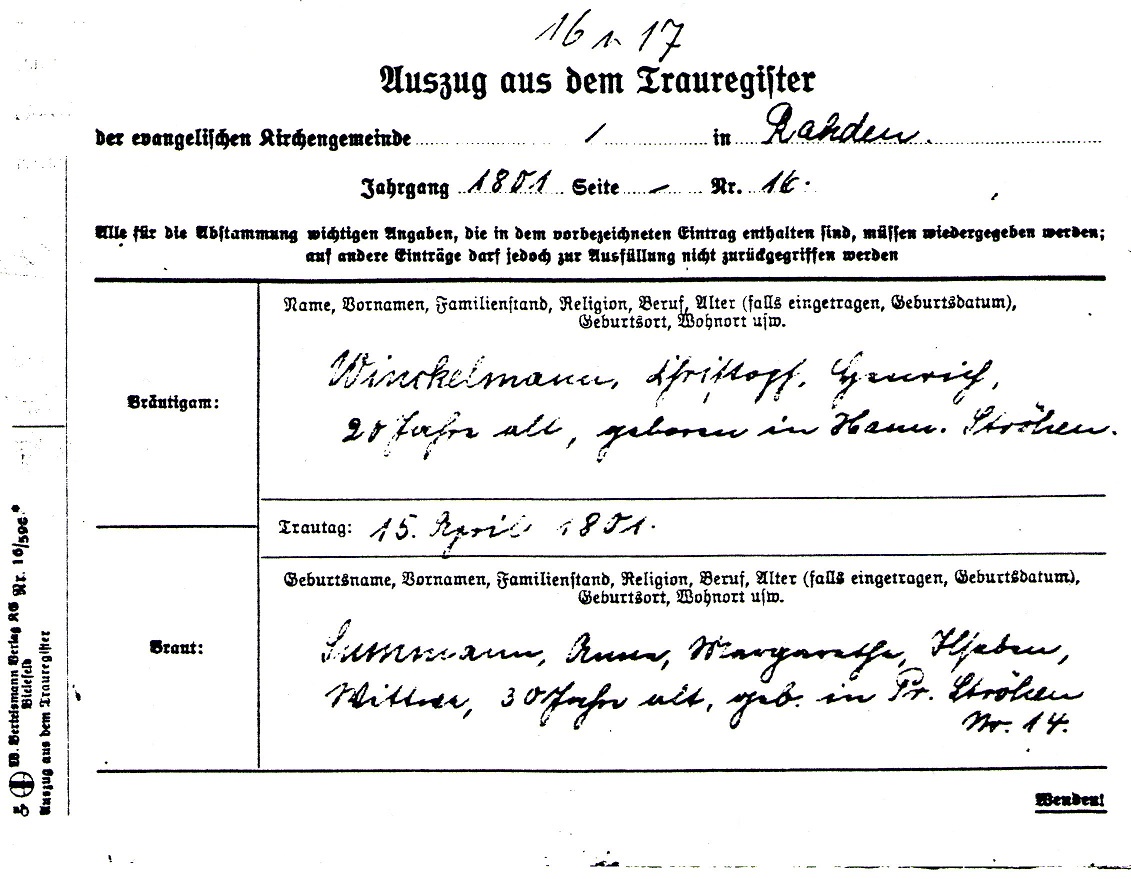 16 u. 17
Auszug aus dem Trauregister
der evangelischen Kirchengemeinde / in Rahden.
Jahrgang 1801 Seite – Nr. 16.
Alle für die Abstammung wichtigen Angaben, die in dem vorbezeichneten Eintrag enthalten sind, müssen wiedergegeben werden;
auf andere Einträge darf jedoch zur Ausfüllung nicht zurückgegriffen werden
Name, Vornamen, Familienstand, Religion, Beruf, Alter (falls eingetragen, Geburtsdatum),
Geburtsort, Wohnort usw.
Bräutigam:
Winckelmann, Christoph, Henrich,
20 Jahre alt, geboren in Hann. Ströhen.
Trautag: 15. April 1801.
Geburtsname, Vornamen, Familienstand, Religion, Beruf, Alter (falls eingetragen, Geburtsdatum),
Geburtsort, Wohnort usw.
Braut:
Anne, Margarethe, Ilsaben,
Wittwe, 30 Jahre alt, geb. in Pr. Ströhen
No. 14.
Wenden!
W. Bertelsmann Verlag KG Nr. 16/596*
Bielefeld
Auszug aus dem Trauregister